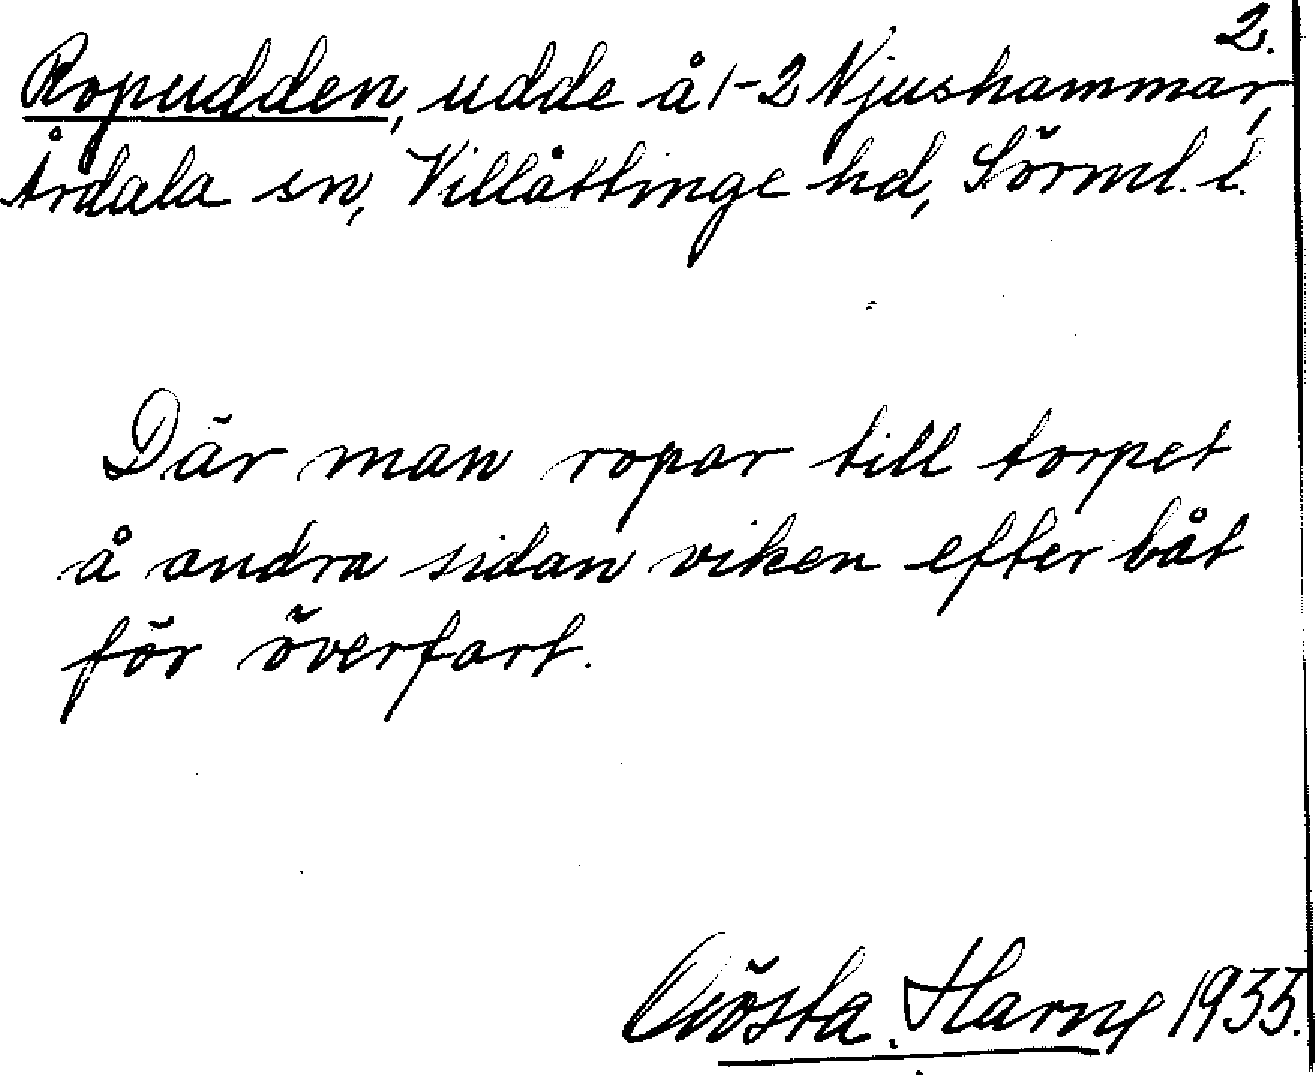 2.
Ropudden, udde å 1-2 Njushammar,
Årdala sn, Villåttinge hd, Sörml. l.
Där man ropar till torpet
å andra sidan viken efter båt
för överfart.
Gösta Harng 1935.